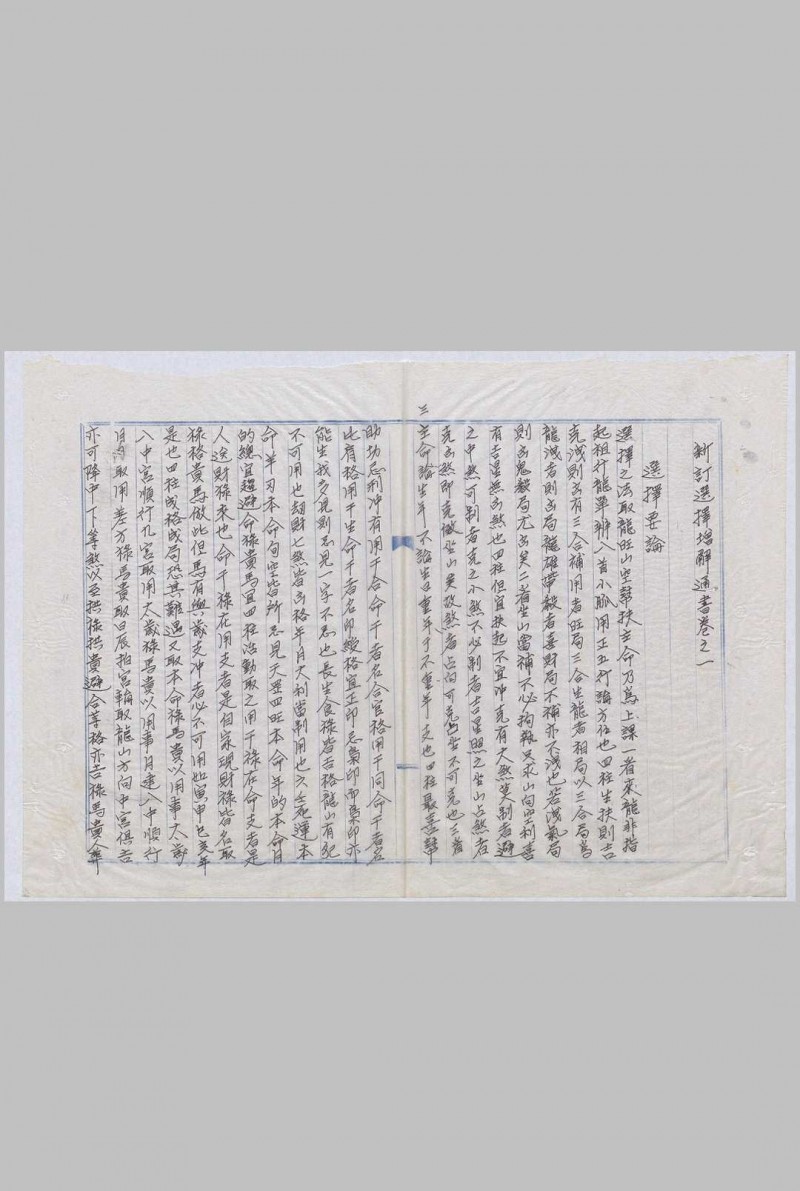 新訂選擇增解通書卷之一
選擇要論
選擇之法取龍旺山空幫扶主命乃爲上課一者來龍非指
起祖行龍單辨入首小脈用正五行論方位也四柱生扶則吉
克洩則凶有三合補用者旺局三合生龍者相局以三合局爲
龍洩者則凶局龍雄帶殺者喜財局不補亦不洩也若洩氣局
則凶鬼殺局尤凶矣二者坐山當補不必拘執只求山向空利喜
有吉星無凶煞也四柱但宜扶起不宜冲克有大煞莫制者避
之中煞可制者克之小煞不必制者吉星照之坐山占煞者
克凶煞卽克坐山矣故煞者占向可克占坐不可克也三者
三主命論生年不論生日重年干不重年支也四柱最喜幫
助切忌刑冲有用干合命干者名合官格用干同命干者名
比肩格用干生命干者名印綬格宜正印忌梟印而梟印亦
能生我多見則忌見一字不忌也長生食祿皆吉格龍山有犯
不可用也刼財七煞皆凶格年月大利當制用也又主死運本
命羊刃本命旬空皆所忌見天罡四旺本命年的本命月
的總宜趨避命祿貴馬宜四柱活動取之用干祿在命支者是
人送財祿來也命干祿在用支者是自家現財祿皆名取
祿格貴馬倣此但馬有與歲支冲者必不可用如寅申巳亥年
是也四柱成格成局恐其難遇又取本命祿馬貴以用事太歲
入中宮順行九宮取用太歲祿馬貴以用事月建入中順行
月內取用差方祿馬貴取日辰拍宮輪取龍山方向中宮俱吉
亦可降中下等煞以至拱祿拱貴避合等格亦吉祿馬貴人年